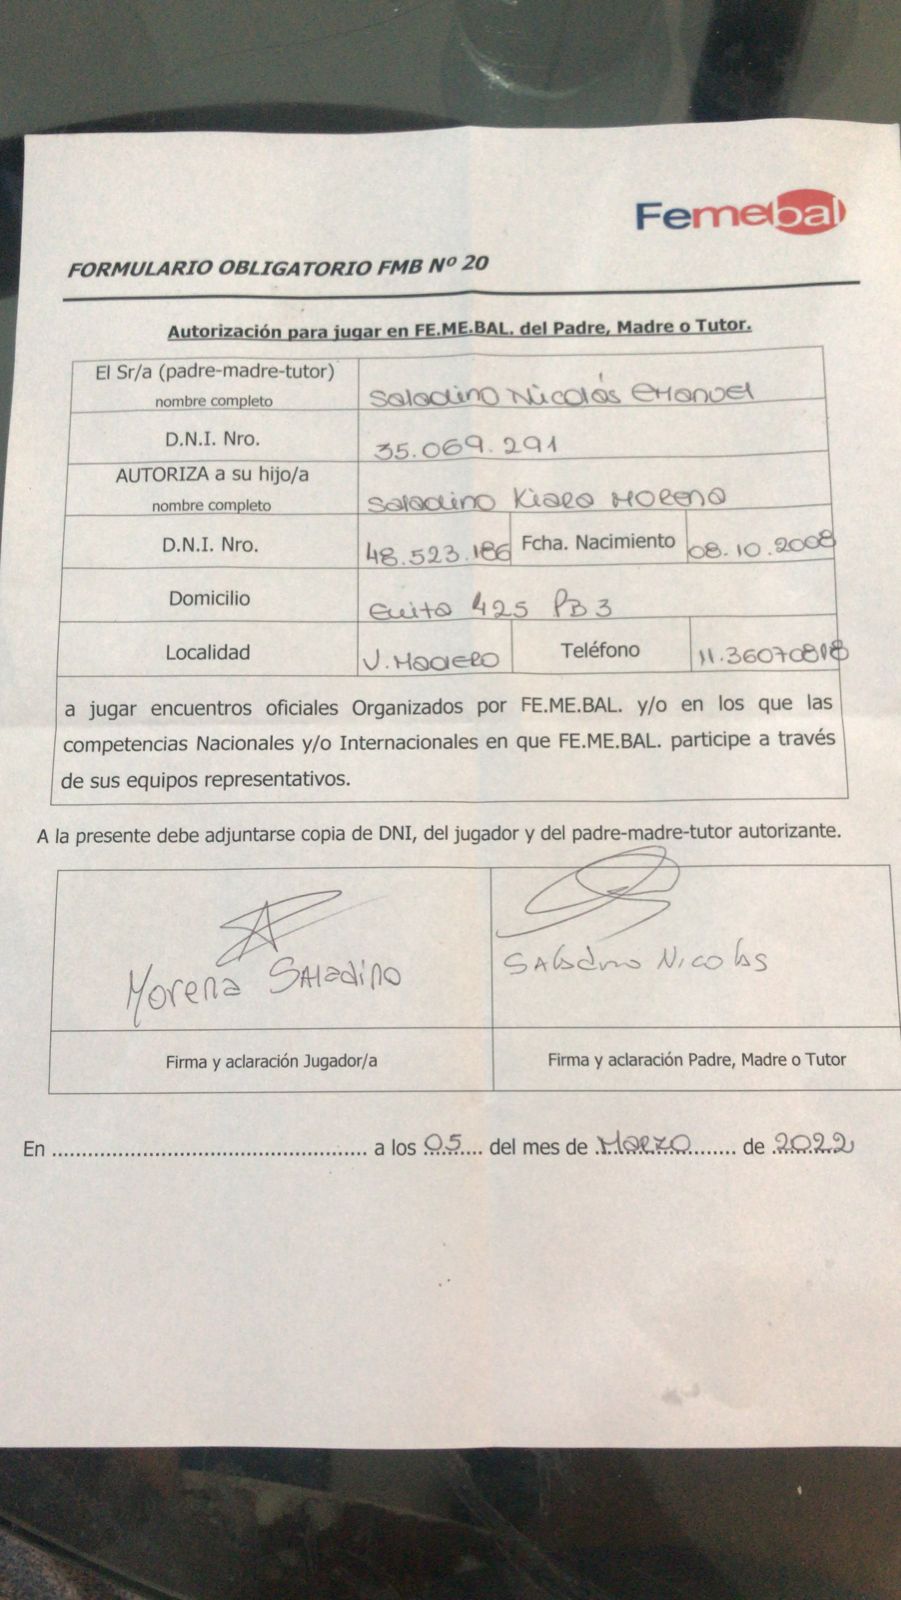 Femebal
FORMULARIO OBLIGATORIO FMB Nº 20
Autorización para jugar en FE.ME.BAL. del Padre, Madre o Tutor.
El Sr/a (padre-madre-tutor)
nombre completo
Saladino Nicolás Emanuel
D.N.I. Nro.
35.069.291
AUTORIZA a su hijo/a
nombre completo
Saladino Kiara Morena
D.N.I. Nro.
48.523.186
Fcha. Nacimiento
08.10.2008
Domicilio
Evita 425 PB 3
Localidad
V. Madero
Teléfono
11.36070818
a jugar encuentros oficiales Organizados por FE.ME.BAL. y/o en los que las
competencias Nacionales y/o Internacionales en que FE.ME.BAL. participe a través
de sus equipos representativos.
A la presente debe adjuntarse copia de DNI, del jugador y del padre-madre-tutor autorizante.
Morena Saladino
Saladino Nicolas
Firma y aclaración Jugador/a
Firma y aclaración Padre, Madre o Tutor
En .................................................. a los 05 del mes de Marzo de 2022